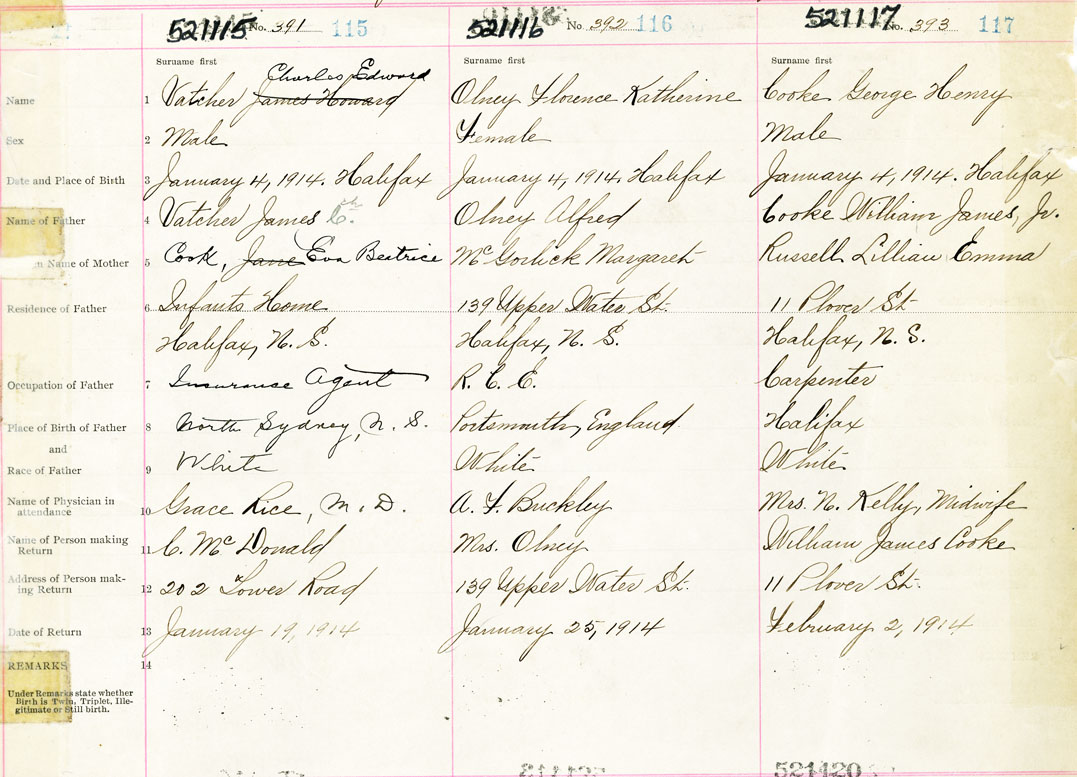 521115 No. 391 115
521116 No. 392 116
521117 No. 393 117
Surname first
Surname first
Surname first
Name 1
Charles Edward
Vatcher James Howard
Olney Florence Katherine
Cooke George Henry
Sex 2
Male
Female
Male
Date and Place of Birth 3
January 4, 1914. Halifax
January 4, 1914, Halifax
January 4, 1914. Halifax
Name of Father 4
Vatcher James C.
Olney Alfred
Cooke William James, Jr.
Name of Mother 5
Cook, Jane Eva Beatrice
McGorlick Margaret
Russell Lillian Emma
Residence of Father 6
Infants Home
139 Upper Water St.
11 Plover St
Halifax, N. S.
Halifax, N. S.
Halifax, N. S.
Occupation of Father 7
Insurance Agent
R. C. E.
Carpenter
Place of Birth of Father 8
North Sydney, N. S.
Portsmouth, England
Halifax
and
Race of Father 9
White
White
White
Name of Physician in
attendance 10
Grace Rice, M. D.
A. F. Buckley
Mrs. N. Kelly, Midwife
Name of Person making
Return 11
C. McDonald
Mrs. Olney
William James Cooke
Address of Person mak-
ing Return 12
202 Lower Road
139 Upper Water St.
11 Plover St.
Date of Return 13
January 19, 1914
January 25, 1914
February 2, 1914
REMARKS 14
Under Remarks state whether
Birth is Twin, Triplet, Ille-
gitimate or Still birth.
521420